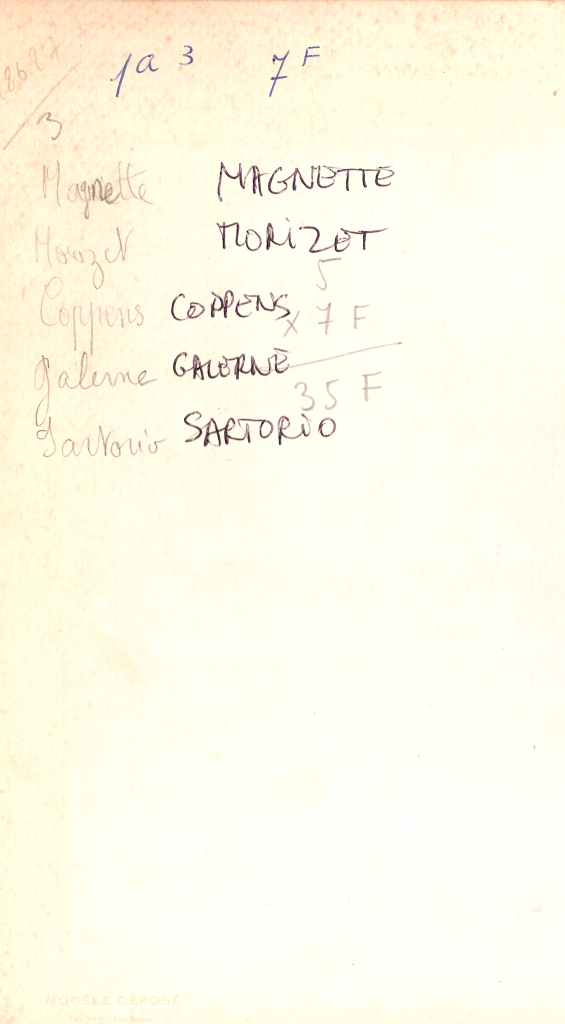 1a 3 7F
3
Magnette MAGNETTE
Morizet MORIZET
5
Coppens COPPENS x 7 F
Galerne GALERNE
35 F
Sartorio SARTORIO
MODÈLE DÉPOSÉ